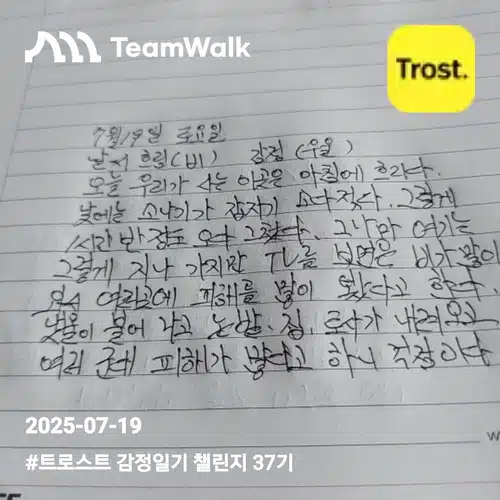 TeamWalk
Trost.
7월19일 토요일
날씨 흐림(비) 감정 (우울)
오늘 우리가 사는 이곳은 아침에 흐리다.
낮에는 소나기가 갑자기 쏘다졌다. 그렇게
1시간 반 정도 오다 그쳤다. 그나마 여기는
그렇게 지나 가지만 TV를 보면은 비가 많이
와서 여러곳에 피해를 많이 봤다고 한다.
냇물이 불어 나고 논밭. 집. 토사가 내려오고
여러 군데 피해가 많다고 하니 걱정이다
2025-07-19
#트로스트 감정일기 챌린지 37기